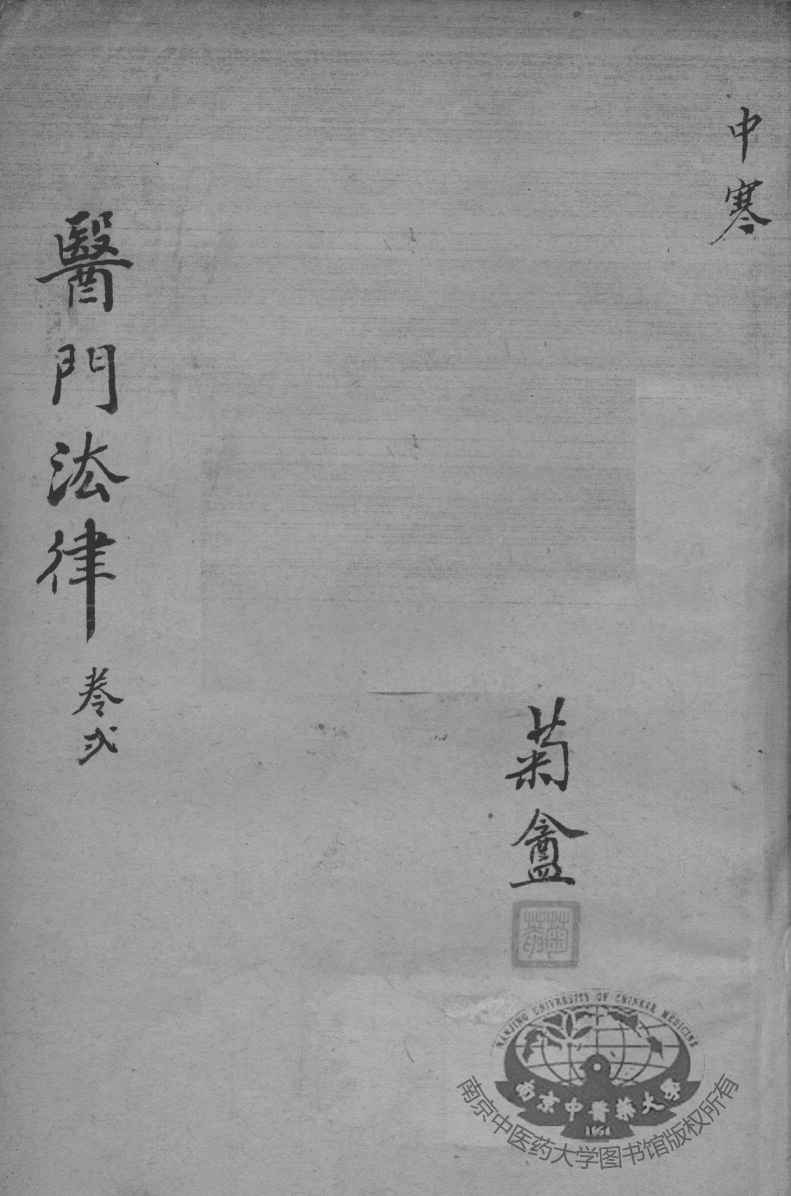 中寒
醫門法律 卷弍
菊盦
NANJING UNIVERSITY OF CHINESE MEDICINE
南京中醫藥大學
1954
南京中医药大学图书馆版权所有